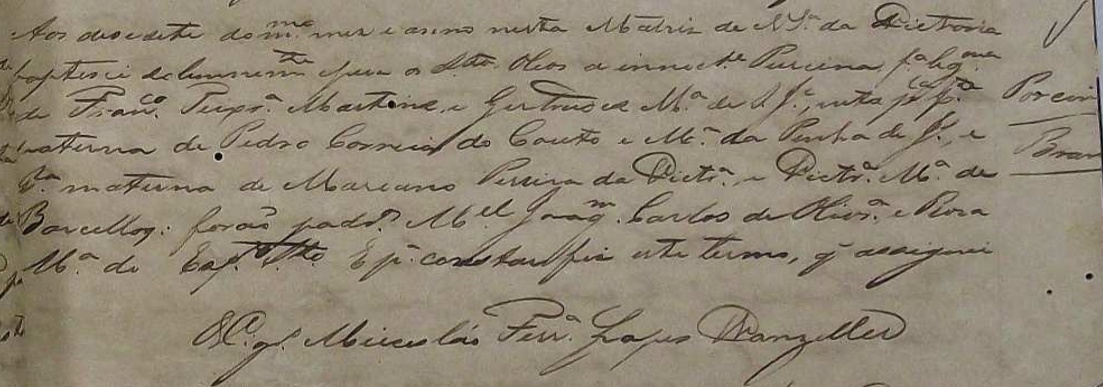 Aos desesete do m.mo mez e anno nesta Matriz de N. S.ra da Victoria
baptisei solemnem.te e puz os S.tos Oleos a innoc.te Porcina, f.a leg.ma
de Fran.co Teix.ra Martins, e Gertrudes M.a de J., neta p.
paterna de Pedro Correia do Couto e M.a da Penha de J., e
p.a materna de Marcano Pereira da Victr.a e Victr.a M.a de
Barcellos: forão padr.os M.el Joaq.m Carlos de Oliv.ra e Roza
M.a do Esp.to S.to E p.a constar fiz este termo, q assignei
Miecesláo Ferr.a Lopes Wanzeller
Porcin
Bran